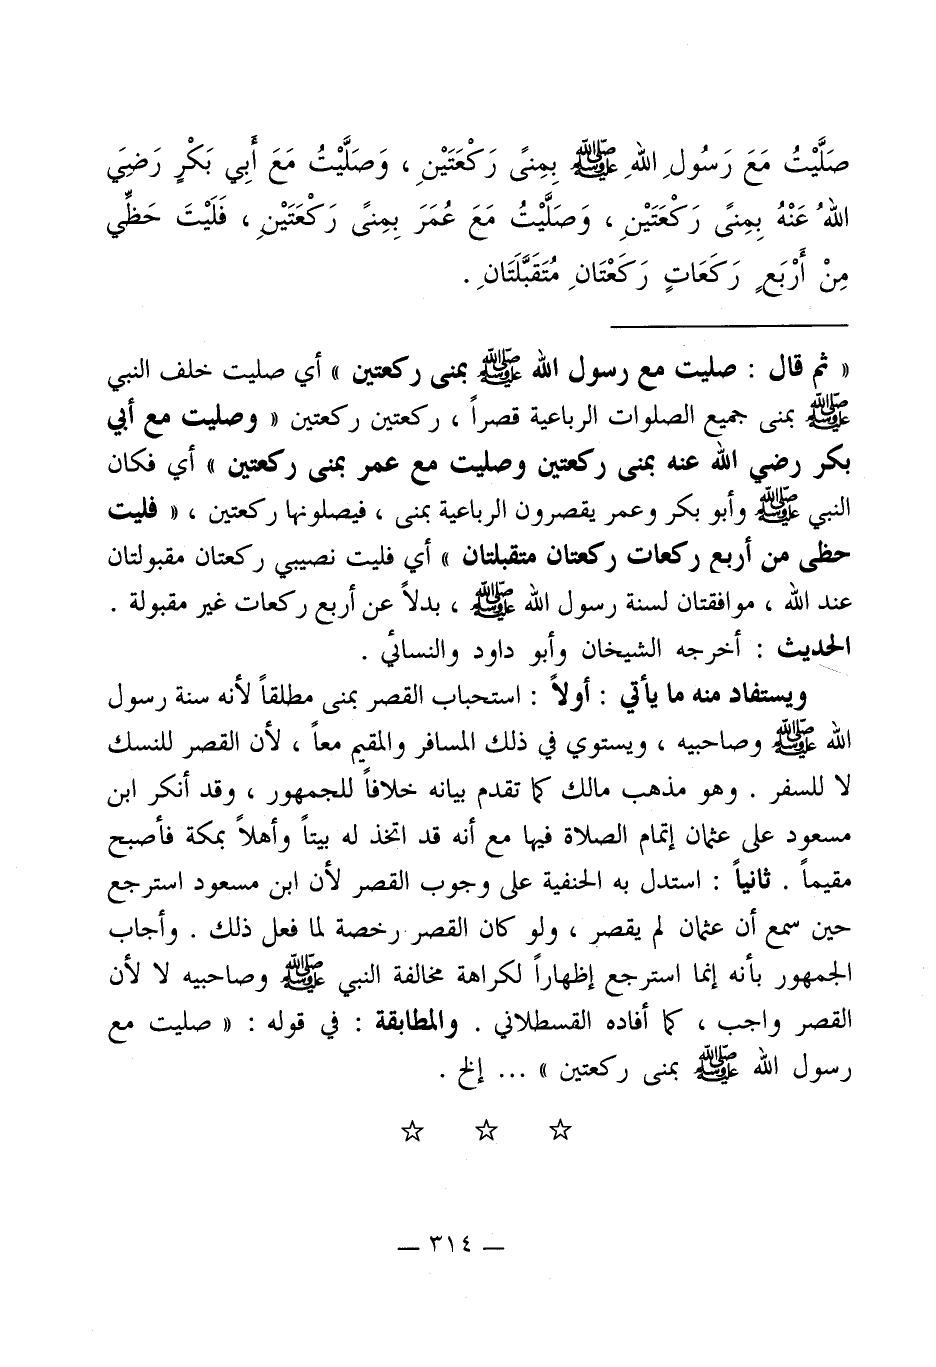 صَلَّيْتُ مَعَ رَسُولِ اللهِ ﷺ بِمِنىً رَكْعَتَيْنِ ، وَصَلَّيْتُ مَعَ أَبِي بَكْرٍ رَضِيَ
اللهُ عَنْهُ بِمِنىً رَكْعَتَيْنِ ، وَصَلَّيْتُ مَعَ عُمَرَ بِمِنىً رَكْعَتَيْنِ ، فَلَيْتَ حَظِّي
مِنْ أَرْبَعِ رَكَعَاتٍ رَكَعْتَانِ مُتَقَبَّلَتَانِ .
« ثم قال : صليت مع رسول الله ﷺ بمنى ركعتين » أي صليت خلف النبي
ﷺ بمنى جميع الصلوات الرباعية قصراً ، ركعتين ركعتين « وصليت مع أبي
بكر رضي الله عنه بمنى ركعتين وصليت مع عمر بمنى ركعتين » أي فكان
النبي ﷺ وأبو بكر وعمر يقصرون الرباعية بمنى ، فيصلونها ركعتين ، « فليت
حظي من أربع ركعات ركعتان متقبلتان » أي فليت نصيبي ركعتان مقبولتان
عند الله ، موافقتان لسنة رسول الله ﷺ ، بدلاً عن أربع ركعات غير مقبولة .
الحديث : أخرجه الشيخان وأبو داود والنسائي .
ويستفاد منه ما يأتي : أولاً : استحباب القصر بمنى مطلقاً لأنه سنة رسول
الله ﷺ وصاحبيه ، ويستوي في ذلك المسافر والمقيم معاً ، لأن القصر للنسك
لا للسفر . وهو مذهب مالك كما تقدم بيانه خلافاً للجمهور ، وقد أنكر ابن
مسعود على عثمان إتمام الصلاة فيها مع أنه قد اتخذ له بيتاً وأهلاً بمكة فأصبح
مقيماً . ثانياً : استدل به الحنفية على وجوب القصر لأن ابن مسعود استرجع
حين سمع أن عثمان لم يقصر ، ولو كان القصر رخصة لما فعل ذلك . وأجاب
الجمهور بأنه إنما استرجع إظهاراً لكراهة مخالفة النبي ﷺ وصاحبيه لا لأن
القصر واجب ، كما أفاده القسطلاني . والمطابقة : في قوله : « صليت مع
رسول الله ﷺ بمنى ركعتين » ... إلخ .
☆ ☆ ☆
— ٣١٤ —